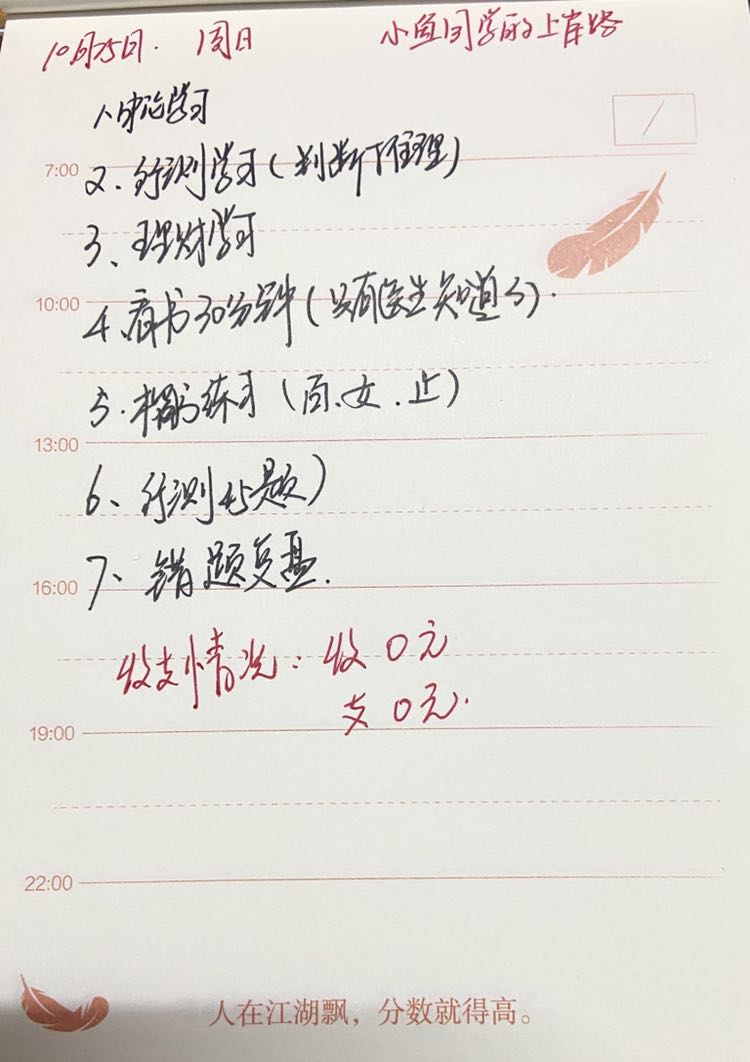 10月25日. 周日 小鱼同学的上岸路
1、申论学习
7:00
2、行测学习(判断推理)
3、理财学习
10:00
4、看书30分钟(只有医生知道3).
5.楷书练习(百、女、止)
13:00
6、行测45题)
7、错题复盘.
16:00
收支情况:收0元
支0元.
19:00
22:00
人在江湖飘，分数就得高。